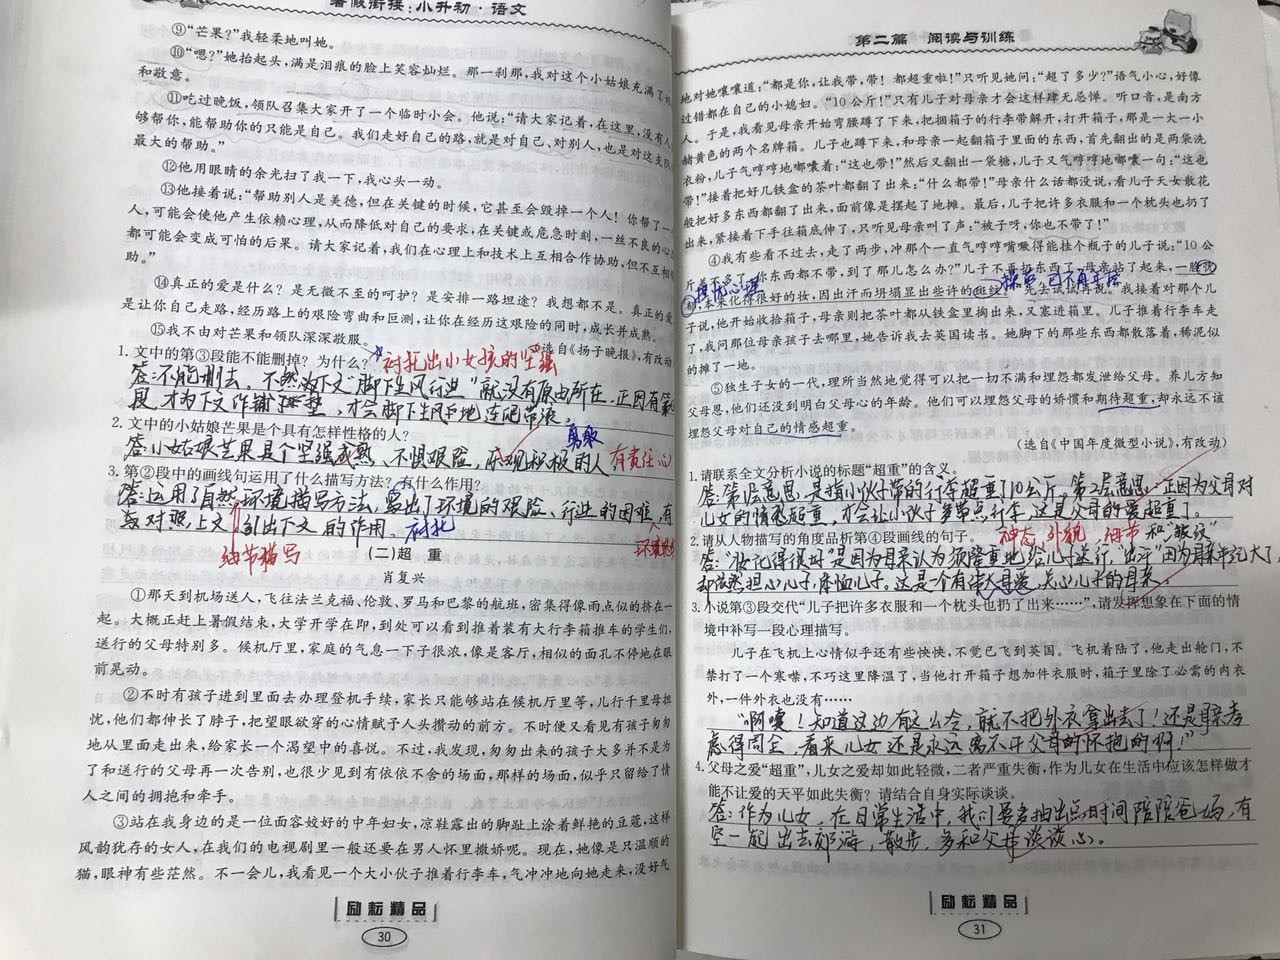 暑假衔接:小升初·语文
⑨“芒果?”我轻柔地叫她。
⑩“嗯?”她抬起头,满是泪痕的脸上笑容灿烂。那一刹那,我对这个小姑娘充满了
和敬意。
⑪吃过晚饭,领队召集大家开了一个临时小会。他说:“请大家记着,在这里,没有人
够帮你,能帮助你的只能是自己。我们走好自己的路,就是对自己、对别人,也是对这支队
最大的帮助。”
⑫他用眼睛的余光扫了我一下,我心头一动。
⑬他接着说:“帮助别人是美德,但在关键的时候,它甚至会毁掉一个人!你帮了一
人,可能会使他产生依赖心理,从而降低对自己的要求,在关键或危急时刻,一丝不良的心
都可能会变成可怕的后果。请大家记着,我们在心理上和技术上互相合作协助,但不互相
助。”
⑭真正的爱是什么?是无微不至的呵护?是安排一路坦途?我想都不是。真正的爱
是让你自己走路,经历路上的艰险弯曲和叵测,让你在经历这艰险的同时,成长并成熟。
⑮我不由对芒果和领队深深敬服。
选自《扬子晚报》,有改动
1. 文中的第③段能不能删掉?为什么?
衬托出小女孩的坚强
答:不能删去,不然后文“脚下生风行进”就没有原由所在,正因有第
段,才为下文作铺垫,才会脚下生风
2. 文中的小姑娘芒果是个具有怎样性格的人?
勇敢
答:小姑娘芒果是个坚强成熟、不惧艰险、乐观积极的人
有责任心
3. 第②段中的画线句运用了什么描写方法?有什么作用?
答:运用了自然环境描写方法,写出了环境的艰险、行进的困难,有
对照上文,引出下文的作用。
衬托
细节描写
(二)超 重
肖复兴
①那天到机场送人,飞往法兰克福、伦敦、罗马和巴黎的航班,密集得像雨点似的挤在一
起。大概正赶上暑假结束,大学开学在即,到处可以看到推着装有大行李箱推车的学生们,
送行的父母特别多。候机厅里,家庭的气息一下子很浓,像是客厅,相似的面孔不停地在眼
前晃动。
②不时有孩子进到里面去办理登机手续,家长只能够站在候机厅里等,儿行千里母担
忧,他们都伸长了脖子,把望眼欲穿的心情赋予人头攒动的前方。不时便又看见有孩子匆匆
地从里面走出来,给家长一个渴望中的喜悦。不过,我发现,匆匆出来的孩子大多并不是为
了和送行的父母再一次告别,也很少见到有依依不舍的场面,那样的场面,似乎只留给了情
人之间的拥抱和牵手。
③站在我身边的是一位面容姣好的中年妇女,凉鞋露出的脚趾上涂着鲜艳的豆蔻,这样
风韵犹存的女人,在我们的电视剧里一般还要在男人怀里撒娇呢。现在,她像是只温顺的
猫,眼神有些茫然。不一会儿,我看见一个大小伙子推着行李,气冲冲地向她走来,没好气
励耘精品
30
第二篇 阅读与训练
地对她嚷嚷道:“都是你,让我带,带!都超重啦!”只听见她问:“超了多少?”语气小心,好像
过错都在自己的小媳妇。“10公斤!”只有儿子对母亲才会这样肆无忌惮。听口音,是南方
人。于是,我看见母亲开始弯腰蹲了下来,把捆箱子的行李带解开,打开箱子,那是一大一小
赭黄色的两个名牌箱。儿子也蹲下来,和母亲一起翻箱子里面的东西,首先翻出的是两袋洗
衣粉,儿子气哼哼地嘟囔着:“这也带!”然后又翻出一袋糖,儿子又气哼哼地嘟囔一句:“这也
带!”接着把好几铁盒的茶叶都翻了出来:“什么都带!”母亲什么话都没说,看儿子天女散花
般把好多东西都翻了出来,面前像是摆起了地摊。最后,儿子把许多衣服和一个枕头也扔了
出来,紧接着下手往箱底伸了,只听见母亲叫了声:“被子呀,你也不带了!”
④我有些看不过去,走了两步,冲那个一直气哼哼嘴噘得能挂个瓶子的儿子说:“10公
斤差不多了,你东西都不带,到了那儿怎么办?”儿子不再扔东西了,母亲站了起来,一脸
本来化得很好的妆,因出汗而坍塌显出些许的斑纹。“先去试试再说。”我接着对那个儿
子说,他开始收拾箱子,母亲则把茶叶都从铁盒里掏出来,又塞进箱里。儿子推着行李车走
了,我问那位母亲孩子去哪里,她告诉我去英国读书。她脚下的那些东西都散落着,稀泥似
的摊了一地。
⑤独生子女的一代,理所当然地觉得可以把一切不满和埋怨都发泄给父母。养儿方知
父母恩,他们还没到明白父母心的年龄。他们可以埋怨父母的娇惯和期待超重,却永远不该
埋怨父母对自己的情感超重。
(选自《中国年度微型小说》,有改动)
1.请联系全文分析小说的标题“超重”的含义。
答:第1层意思:是指小伙子带的行李超重了10公斤,第2层意思:正因为父母对
儿女的情感超重,才会让小伙子多带点行李,这是父母的爱超重了。
2.请从人物描写的角度品析第④段画线的句子。
神态 外貌 细节
答:“妆化得很好”是因为母亲认为须隆重地给儿子送行,“出汗”因为母亲年纪大了,
却依然担心儿子,体恤儿子。这是一个有关心儿子的母亲。
3.小说第③段交代“儿子把许多衣服和一个枕头也扔了出来……”,请发挥想象在下面的情
境中补写一段心理描写。
儿子在飞机上心情似乎还有些怏怏,不觉已飞到英国。飞机着陆了,他走出舱门,不
禁打了一个寒噤,不巧这里降温了,当他打开箱子想加件衣服时,箱子里除了必需的内衣
外,一件外衣也没有……
“啊嚏!知道这边有这么冷,就不把外衣拿出去了!还是母亲考
虑得周全,看来儿女还是永远离不开父母的怀抱的啊!”
4.父母之爱“超重”,儿女之爱却如此轻微,二者严重失衡,作为儿女在生活中应该怎样做才
能不让爱的天平如此失衡?请结合自身实际谈谈。
答:作为儿女,在日常生活中,我们要多抽出点时间陪陪爸妈,有
空一起出去郊游,散步,多和父母谈谈心。
励耘精品
31